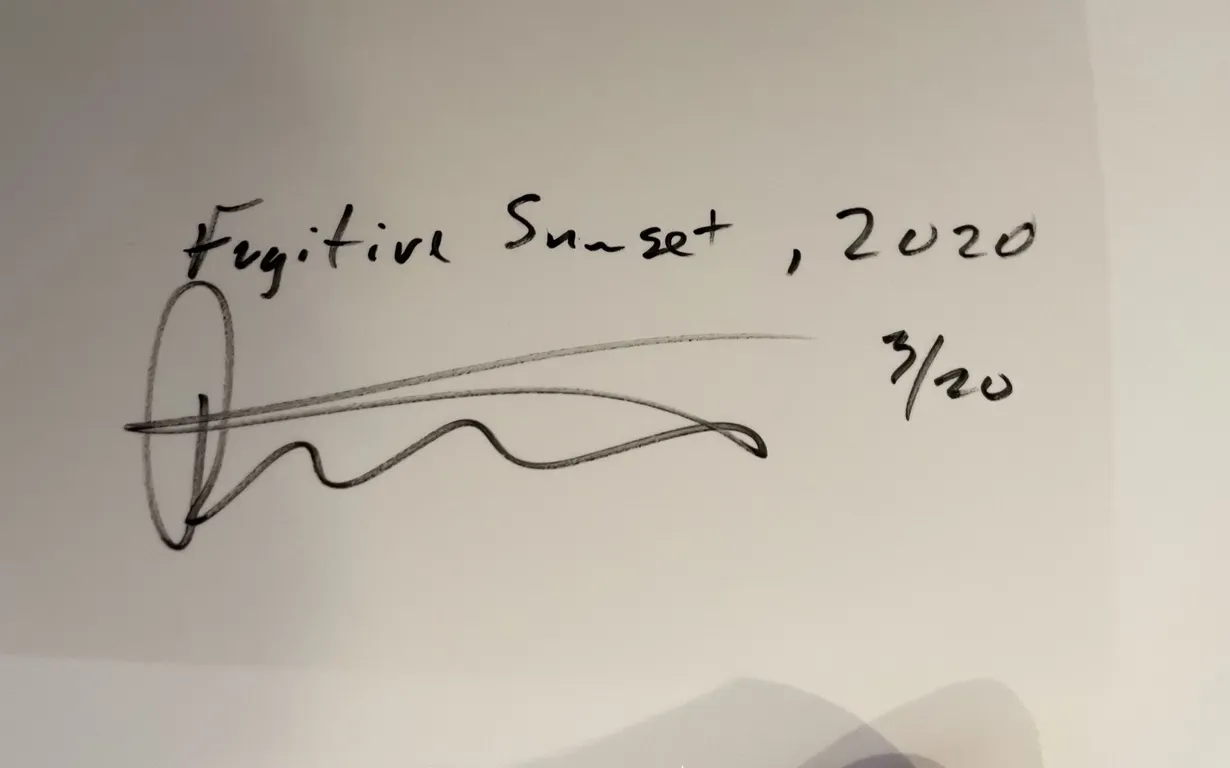 Fugitive Sunset, 2020
3/20